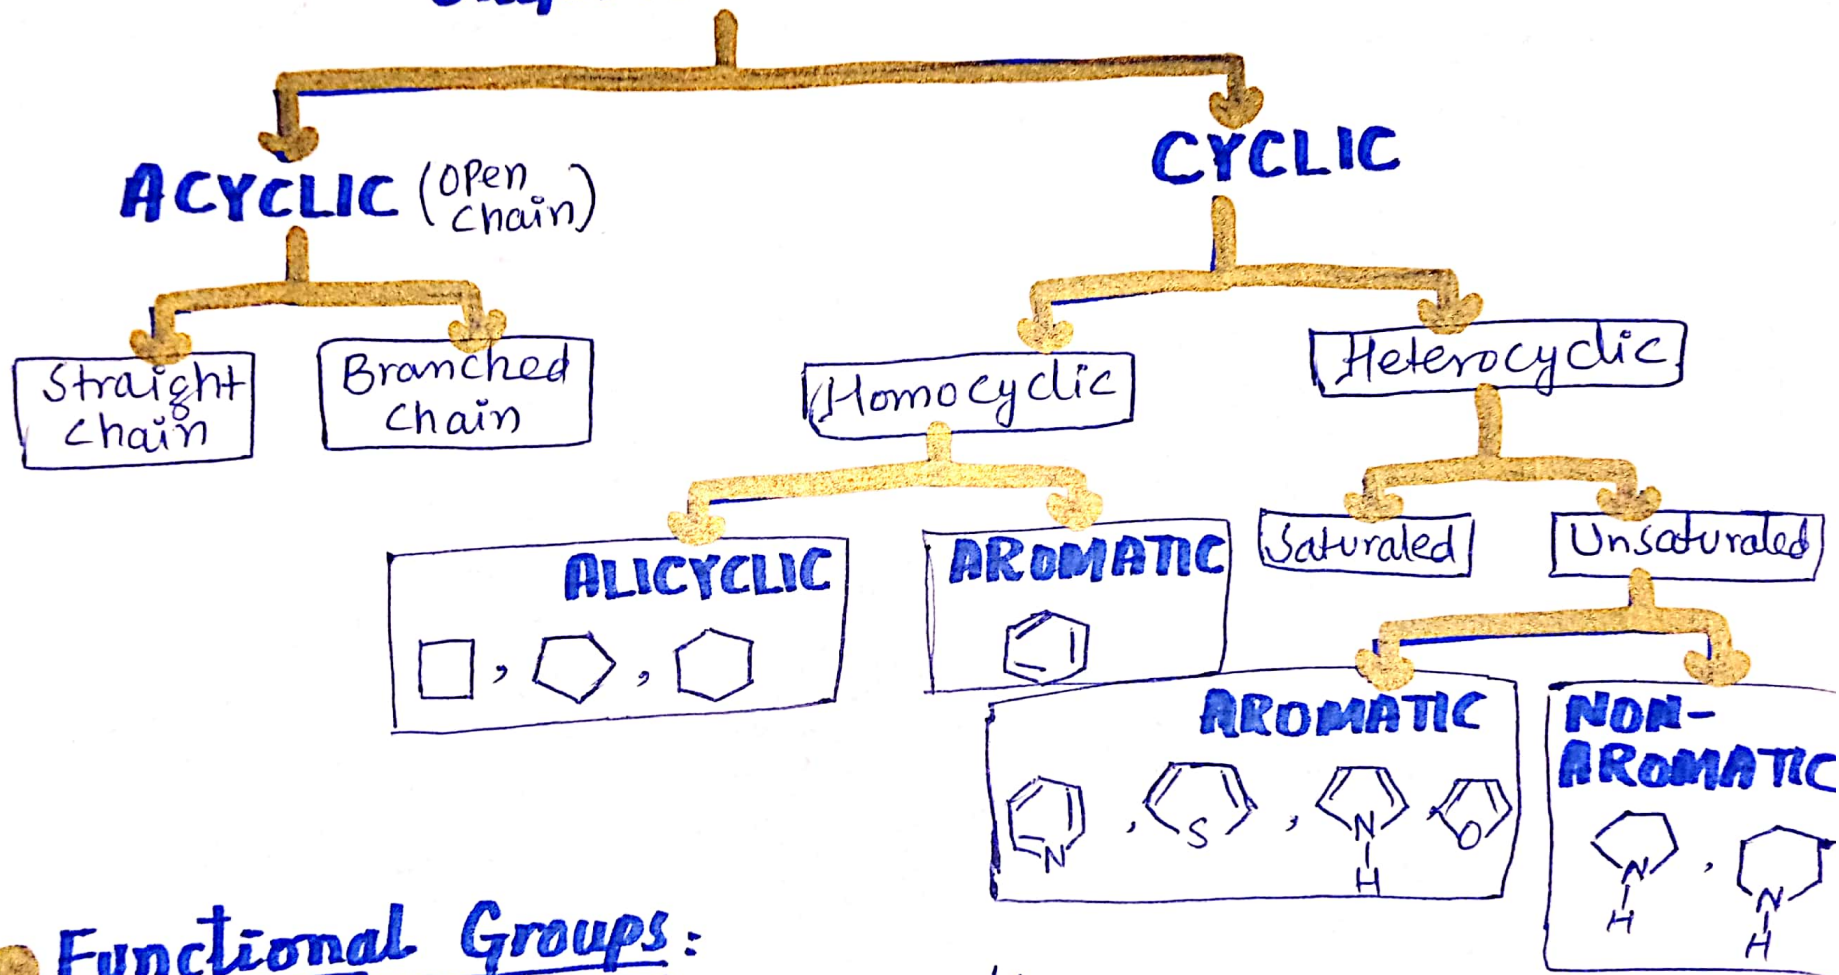 ACYCLIC (open
chain)
CYCLIC
Straight
chain
Branched
chain
Homocyclic
Heterocyclic
ALICYCLIC
AROMATIC
Saturated
Unsaturated
, ,
AROMATIC
N , S , N
H
O
NON-
AROMATIC
N , N
H H
Functional Groups: